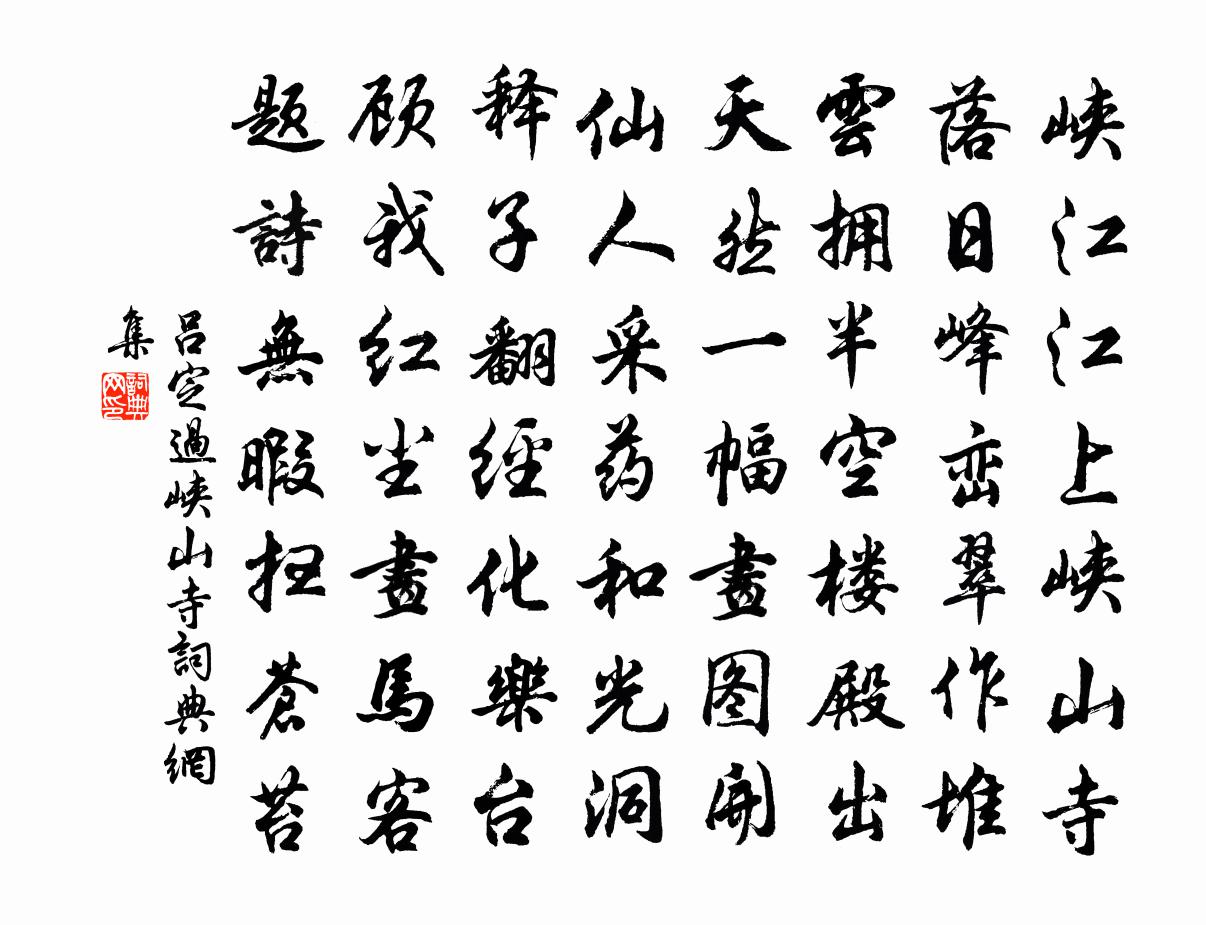 峡江江上峡山寺
落日峰峦翠作堆
雲拥半空楼殿出
天然一幅畫图開
仙人采药和光洞
释子翻经化樂台
顾我红尘畫馬客
题詩無暇扫蒼苔
吕定過峡山寺詞典網
集
詞典
网印